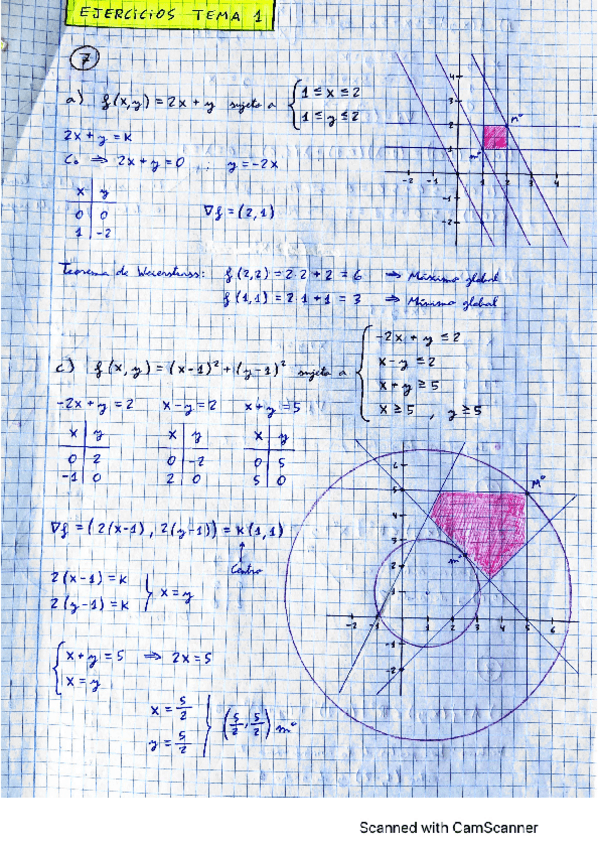 EJERCICIOS TEMA 1
7
a) f(x,y) = 2x + y sujeto a { 1 ≤ x ≤ 2
1 ≤ y ≤ 2
2x + y = K
C₀ ⇒ 2x + y = 0 ; y = -2x
x | y
0 | 0
1 | -2
∇f = (2,1)
4
3
2
1
-2 -1 1 2 3 4
-1
-2
M°
m°
Teorema de Weierstrass: f(2,2) = 2·2 + 2 = 6 ⇒ Máximo global
f(1,1) = 2·1 + 1 = 3 ⇒ Mínimo global
c) f(x,y) = (x-1)² + (y-1)² sujeto a { -2x + y ≤ 2
x - y ≤ 2
x + y ≥ 5
x ≥ 5 , y ≥ 5
-2x + y = 2 x - y = 2 x + y = 5
x | y x | y x | y
0 | 2 0 | -2 0 | 5
-1 | 0 2 | 0 5 | 0
∇f = (2(x-1), 2(y-1)) = K(1,1)
↑
Centro
2(x-1) = K
2(y-1) = K } x = y
{ x + y = 5 ⇒ 2x = 5
x = y
x = 5/2
y = 5/2 } (5/2, 5/2) m°
6
5
4
3
2
1
-2 -1 1 2 3 4 5 6
-1
-2
M°
m°
Scanned with CamScanner